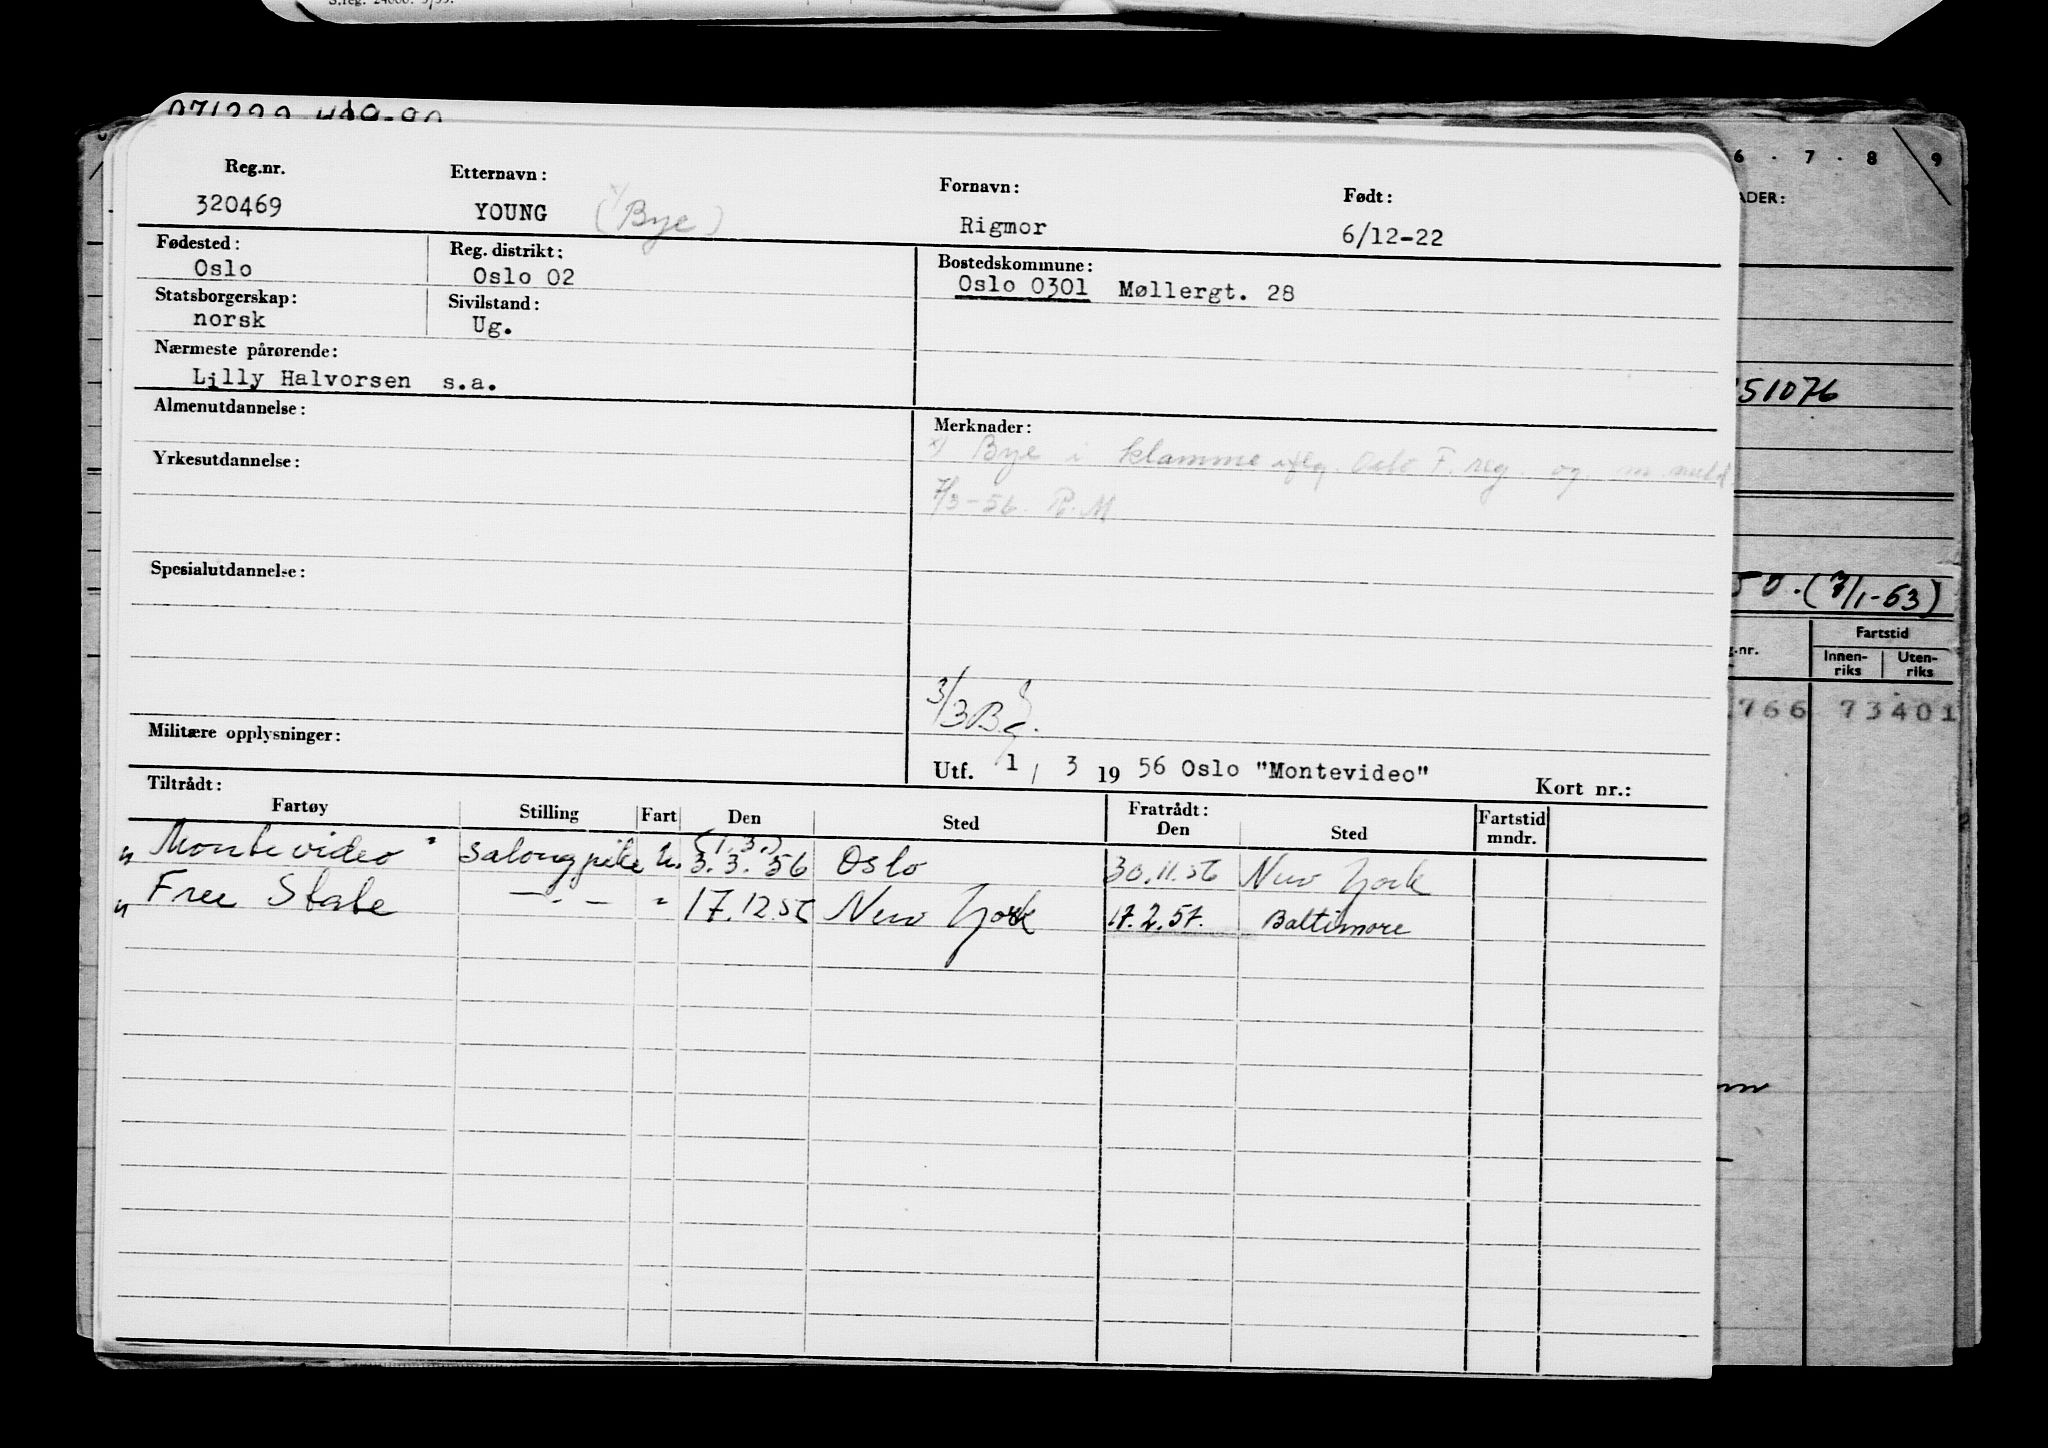 S.reg. 24000. 5/55.
071222 489-80
6 . 7 . 8 9
ADER:
Reg.nr. Etternavn: Fornavn: Født:
320469 YOUNG x) (Bye) Rigmor 6/12-22
Fødested: Reg. distrikt: Bostedskommune:
Oslo Oslo 02 Oslo 0301 Møllergt. 28
Statsborgerskap: Sivilstand:
norsk Ug.
Nærmeste pårørende:
Lilly Halvorsen s.a.
51076
Almenutdannelse: Merknader:
x) Bye i klamme iflg. Oslo F. reg. og meld
Yrkesutdannelse:
7/3-56. R.M
Spesialutdannelse:
50. (7/1-63)
Fartstid
g.nr. Innen- Uten-
riks riks
766 73401
3/3 B.
Militære opplysninger:
Utf. 1 / 3 19 56 Oslo "Montevideo" Kort nr.:
Tiltrådt: Fratrådt: Fartstid
Fartøy Stilling Fart Den Sted Den Sted mndr.
(1.3.)
"Montevideo" salongpike u. 3.3.56 Oslo 30.11.56 New York
"Free State -.- " 17.12.56 New York 17.2.57. Baltimore